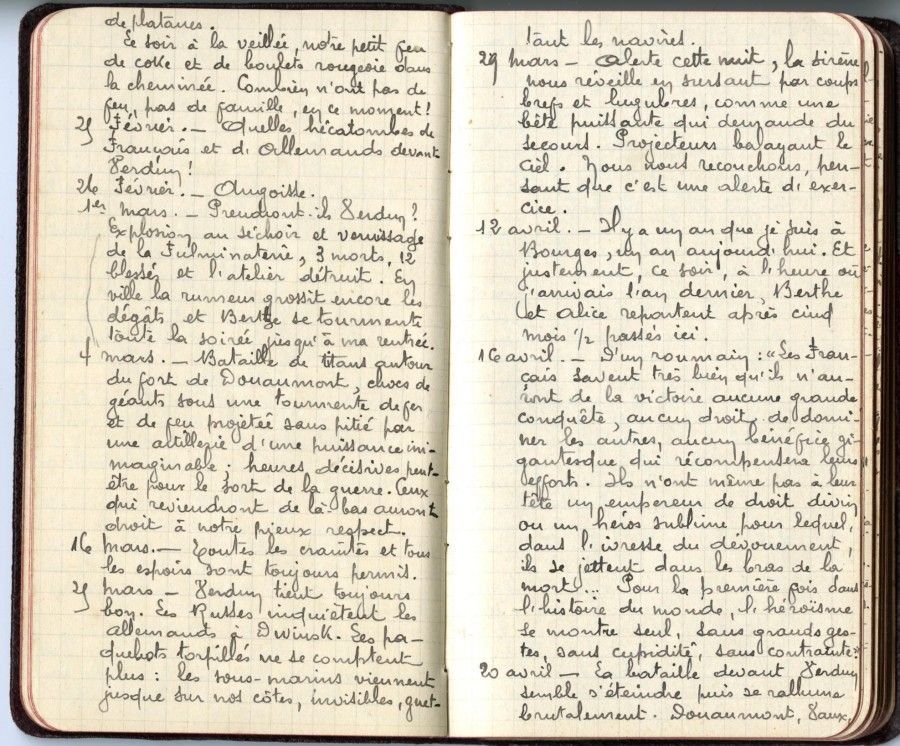 de platanes.
Le soir à la veillée, notre petit feu
de coke et de boulets rougeoie dans
la cheminée. Combien n'ont pas de
feu, pas de famille, en ce moment!
25 Février. — Quelles hécatombes de
Français et d'Allemands devant
Verdun!
26 Février. — Angoisse.
1er mars. — Prendront-ils Verdun?
Explosion au séchoir et vernissage
de la Fulminaterie, 3 morts, 12
blessés et l'atelier détruit. En
ville la rumeur grossit encore les
dégâts et Berthe se tourmente
toute la soirée jusqu'à ma rentrée.
4 mars. — Bataille de titans autour
du fort de Douaumont, chocs de
géants sous une tourmente de fer
et de feu projetée sans pitié par
une artillerie d'une puissance ini-
maginable; heures décisives peut-
être pour le sort de la guerre. Ceux
qui reviendront de là-bas auront
droit à notre pieux respect.
16 mars. — Toutes les craintes et tous
les espoirs sont toujours permis.
25 mars — Verdun tient toujours
bon. Les Russes inquiètent les
allemands à Dwinsk. Les pa-
quebots torpillés ne se comptent
plus: les sous-marins viennent
jusque sur nos côtes, invisibles, guet-
tant les navires.
29 mars — Alerte cette nuit, la sirène
nous réveille en sursaut par coups
brefs et lugubres, comme une
bête puissante qui demande du
secours. Projecteurs balayant le
ciel. Nous nous recouchons, pen-
sant que c'est une alerte d'exer-
cice.
12 avril. — Il y a un an que je suis à
Bourges, un an aujourd'hui. Et
justement, ce soir, à l'heure où
j'arrivais l'an dernier, Berthe
et Alice repartent après cinq
mois 1/2 passés ici.
16 avril. — D'un roumain: "Les Fran-
çais savent très bien qu'ils n'au-
ront de la victoire aucune grande
conquête, aucun droit de domi-
ner les autres, aucun bénéfice gi-
gantesque qui récompensera leurs
efforts. Ils n'ont même pas à leur
tête un empereur de droit divin
ou un héros sublime pour lequel,
dans l'ivresse du dévouement,
ils se jettent dans les bras de la
mort... Pour la première fois dans
l'histoire du monde, l'héroïsme
se montre seul, sans grands ges-
tes, sans cupidité, sans contrainte."
20 avril — La bataille devant Verdun
semble s'éteindre puis se rallume
brutalement. Douaumont, Vaux,